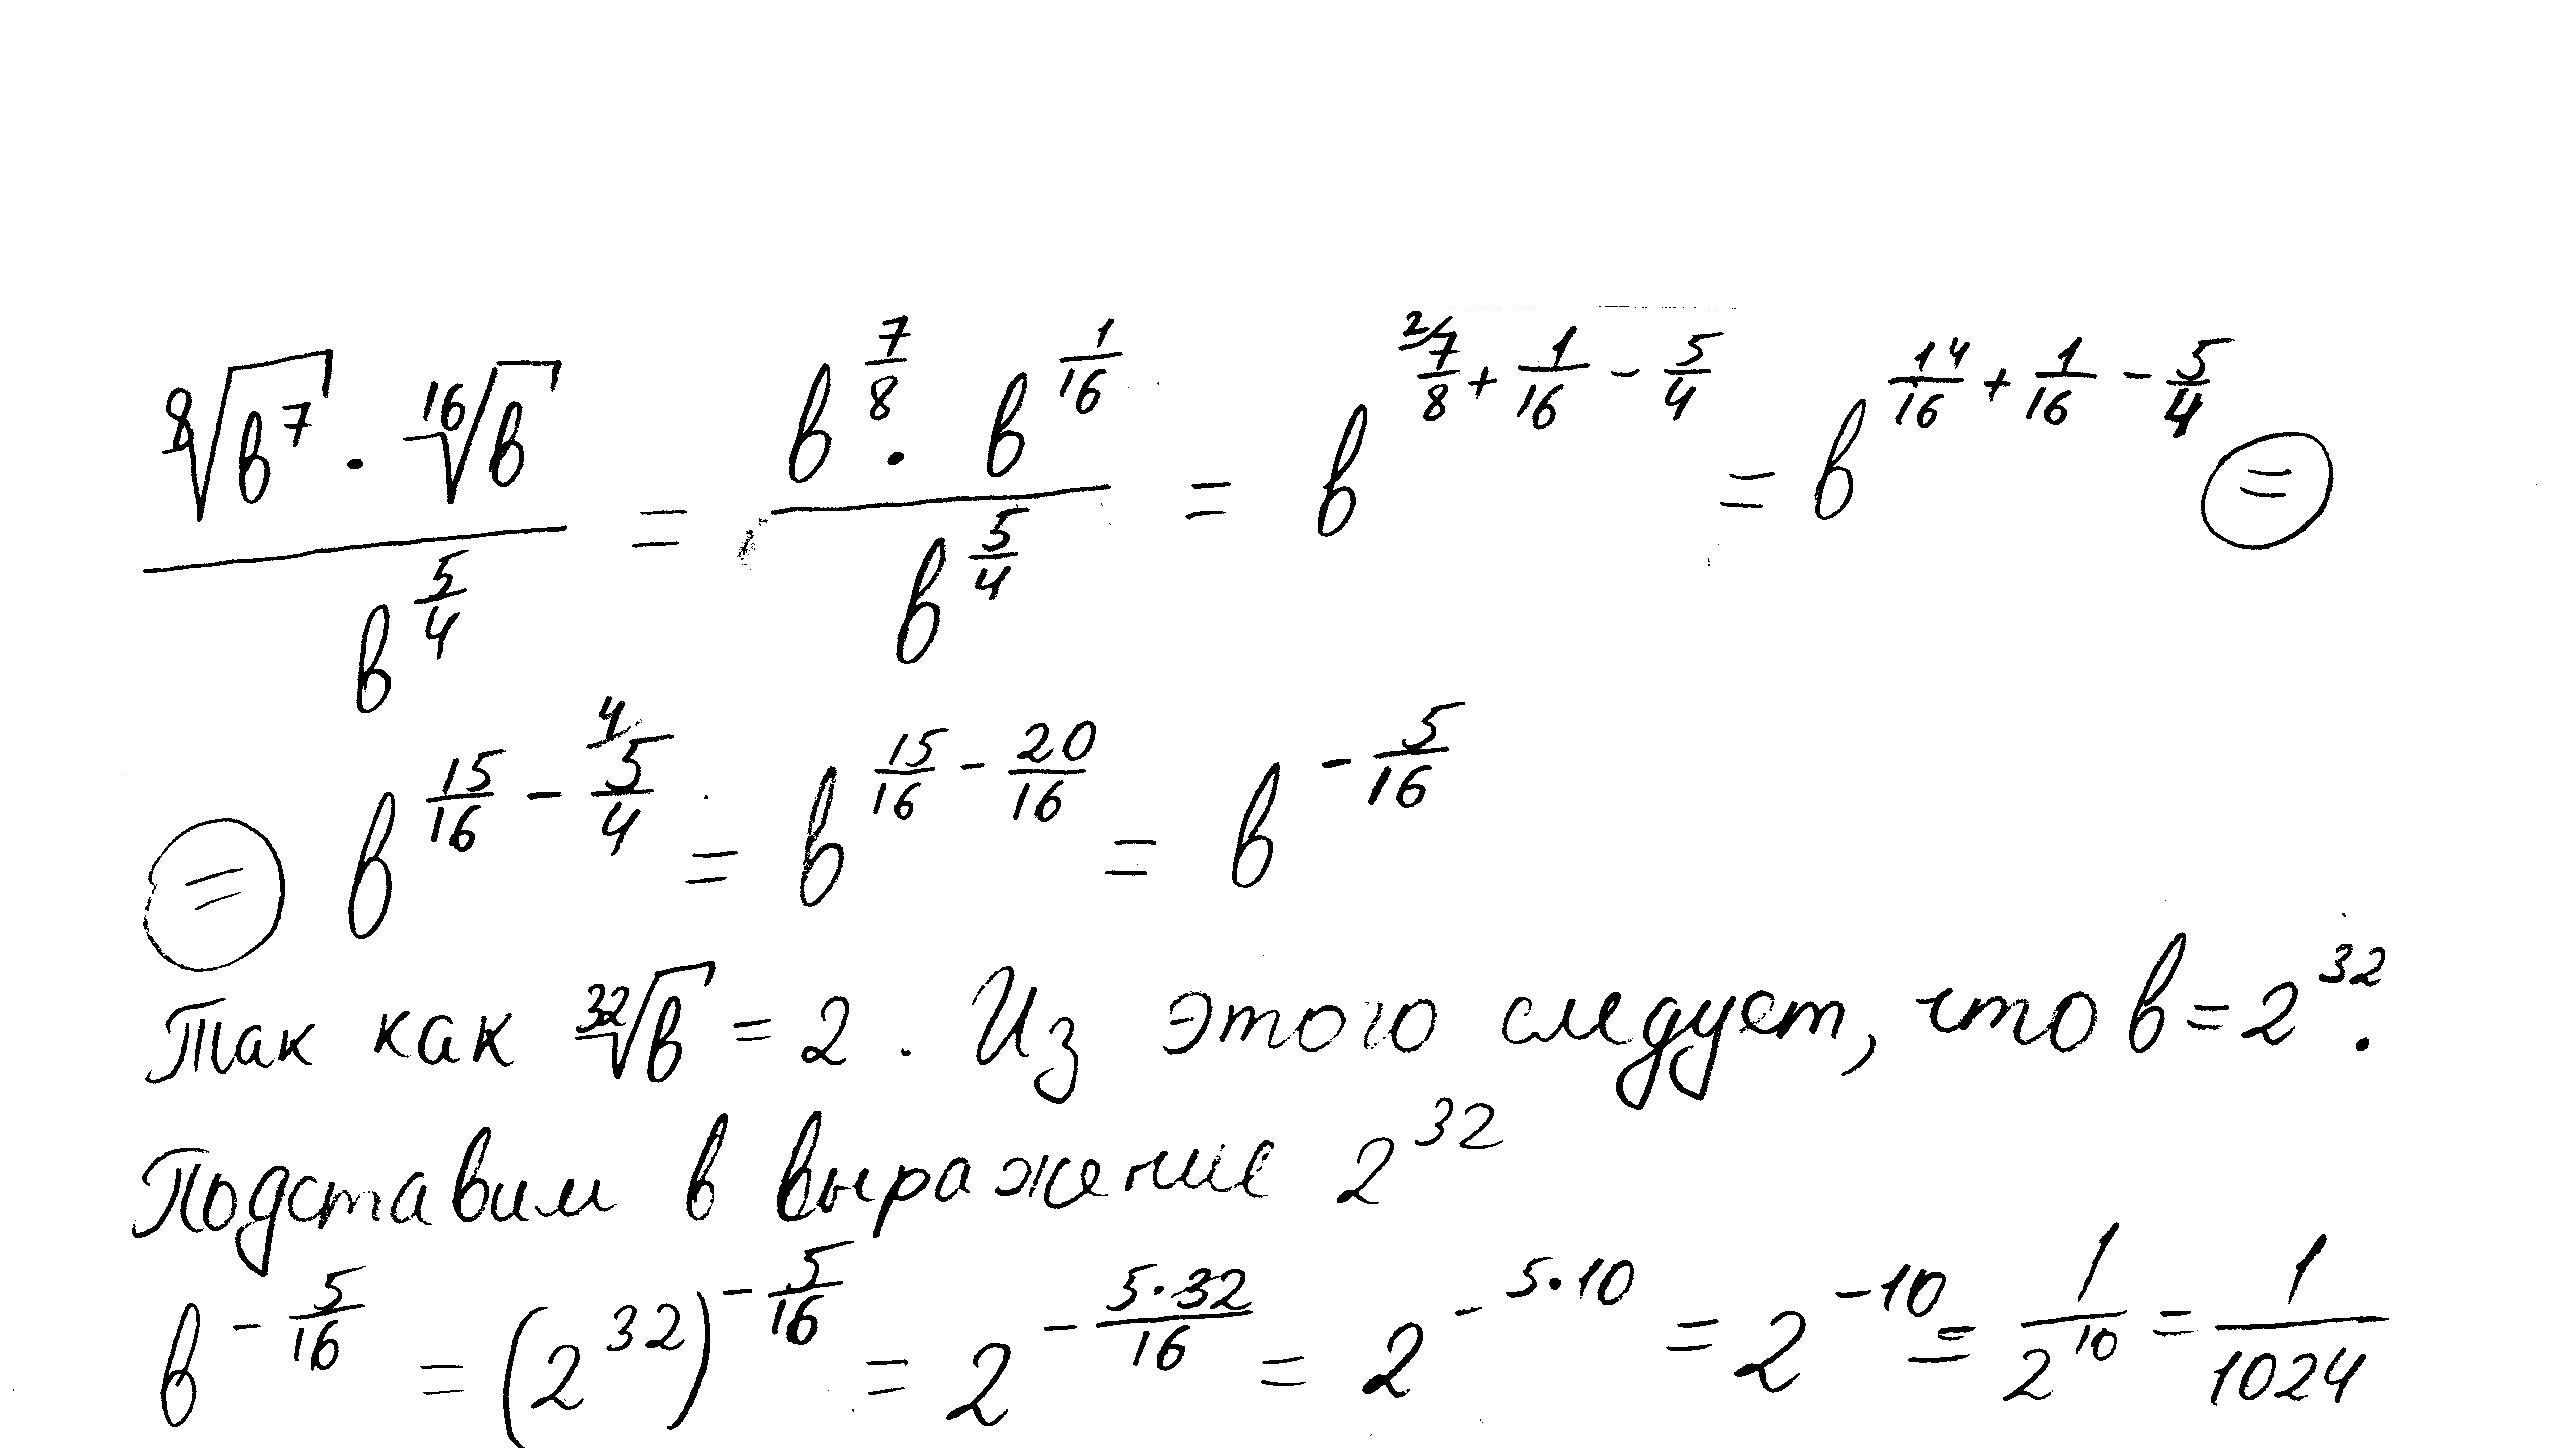 ⁸√в⁷ · ¹⁶√в / в^(5/4) = в^(7/8) · в^(1/16) / в^(5/4) = в^(²⁄7/8 + 1/16 − 5/4) = в^(14/16 + 1/16 − 5/4) =
= в^(15/16 − ⁴⁄5/4) = в^(15/16 − 20/16) = в^(−5/16)
Так как ³²√в = 2. Из этого следует, что в = 2³².
Подставим в выражение 2³²
в^(−5/16) = (2³²)^(−5/16) = 2^(−5·32/16) = 2^(−5·10) = 2^(−10) = 1/2¹⁰ = 1/1024